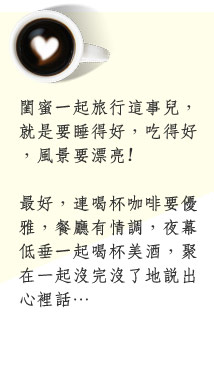 閨蜜一起旅行這事兒，
就是要睡得好，吃得好
，風景要漂亮!
最好，連喝杯咖啡要優
雅，餐廳有情調，夜幕
低垂一起喝杯美酒，聚
在一起沒完沒了地說出
心裡話…